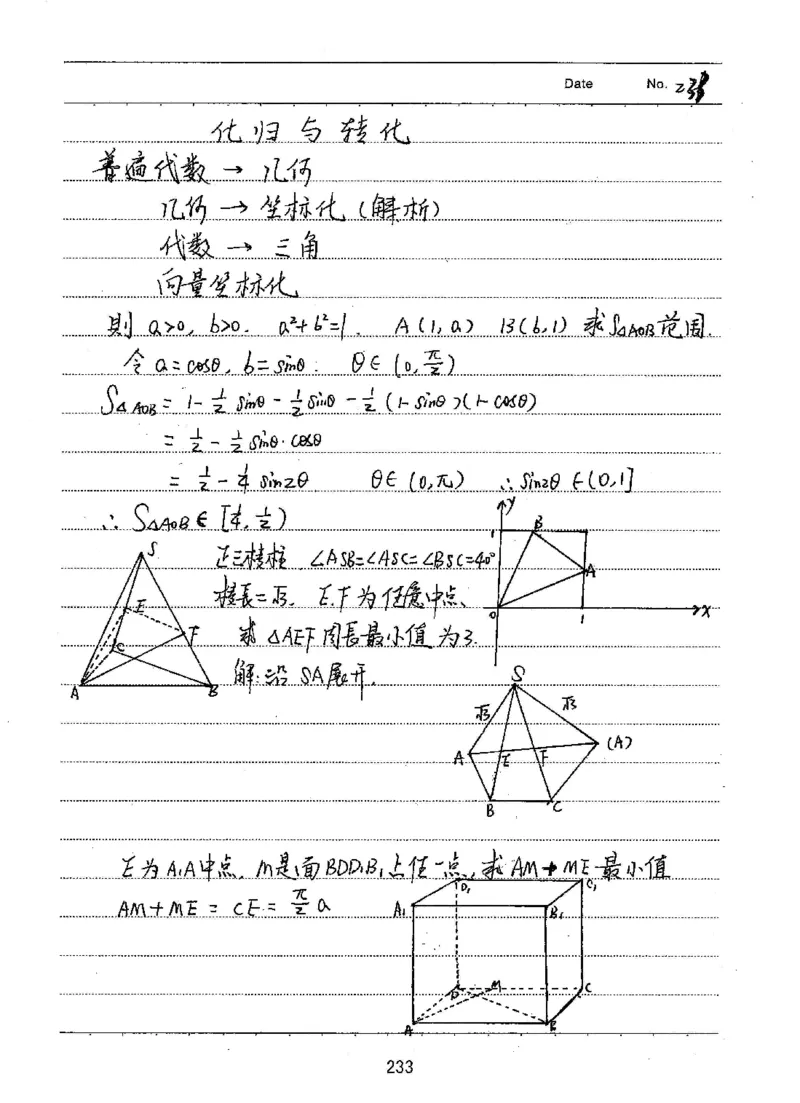 Date No. 233
化归与转化
普遍代数 → 几何
几何 → 坐标化 (解析)
代数 → 三角
向量坐标化
則 a>0, b>0. a²+b²=1. A(1,a) B(b,1) 求S△AOB范围.
令 a=cosθ, b=sinθ. θ∈(0,π/2)
S△AOB = 1-1/2 sinθ-1/2 sinθ-1/2(1-sinθ)(1-cosθ)
= 1/2-1/2 sinθ·cosθ
= 1/2-1/4 sin2θ θ∈(0,π) ∴sin2θ∈(0,1]
∴ S△AOB∈[1/4,1/2)
y
1
B
A
0
1
x
S
E
F
C
A
B
正三棱柱 ∠ASB=∠ASC=∠BSC=40°
棱長=√3. E.F为任意中点、
求 △AEF 周長最小值为3.
解:沿 SA展开.
S
√3
√3
A
E
F
(A)
B
C
E为A₁A中点. M是面BDD₁B₁上任一点,求AM+ME最小值
AM+ME = CE = π/2 a
D₁
C₁
A₁
B₁
D
M
C
A
B
233